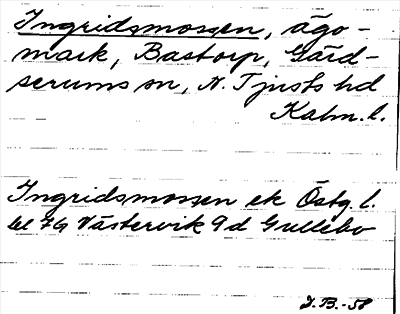 Ingridsmossen, ägo-
mark, Bastorp, Gärd-
serums sn, N. Tjusts hd
Kalm. l.
Ingridsmossen ek Östg. l.
bl 7G Västervik 9d Gullebo
J.B.-58